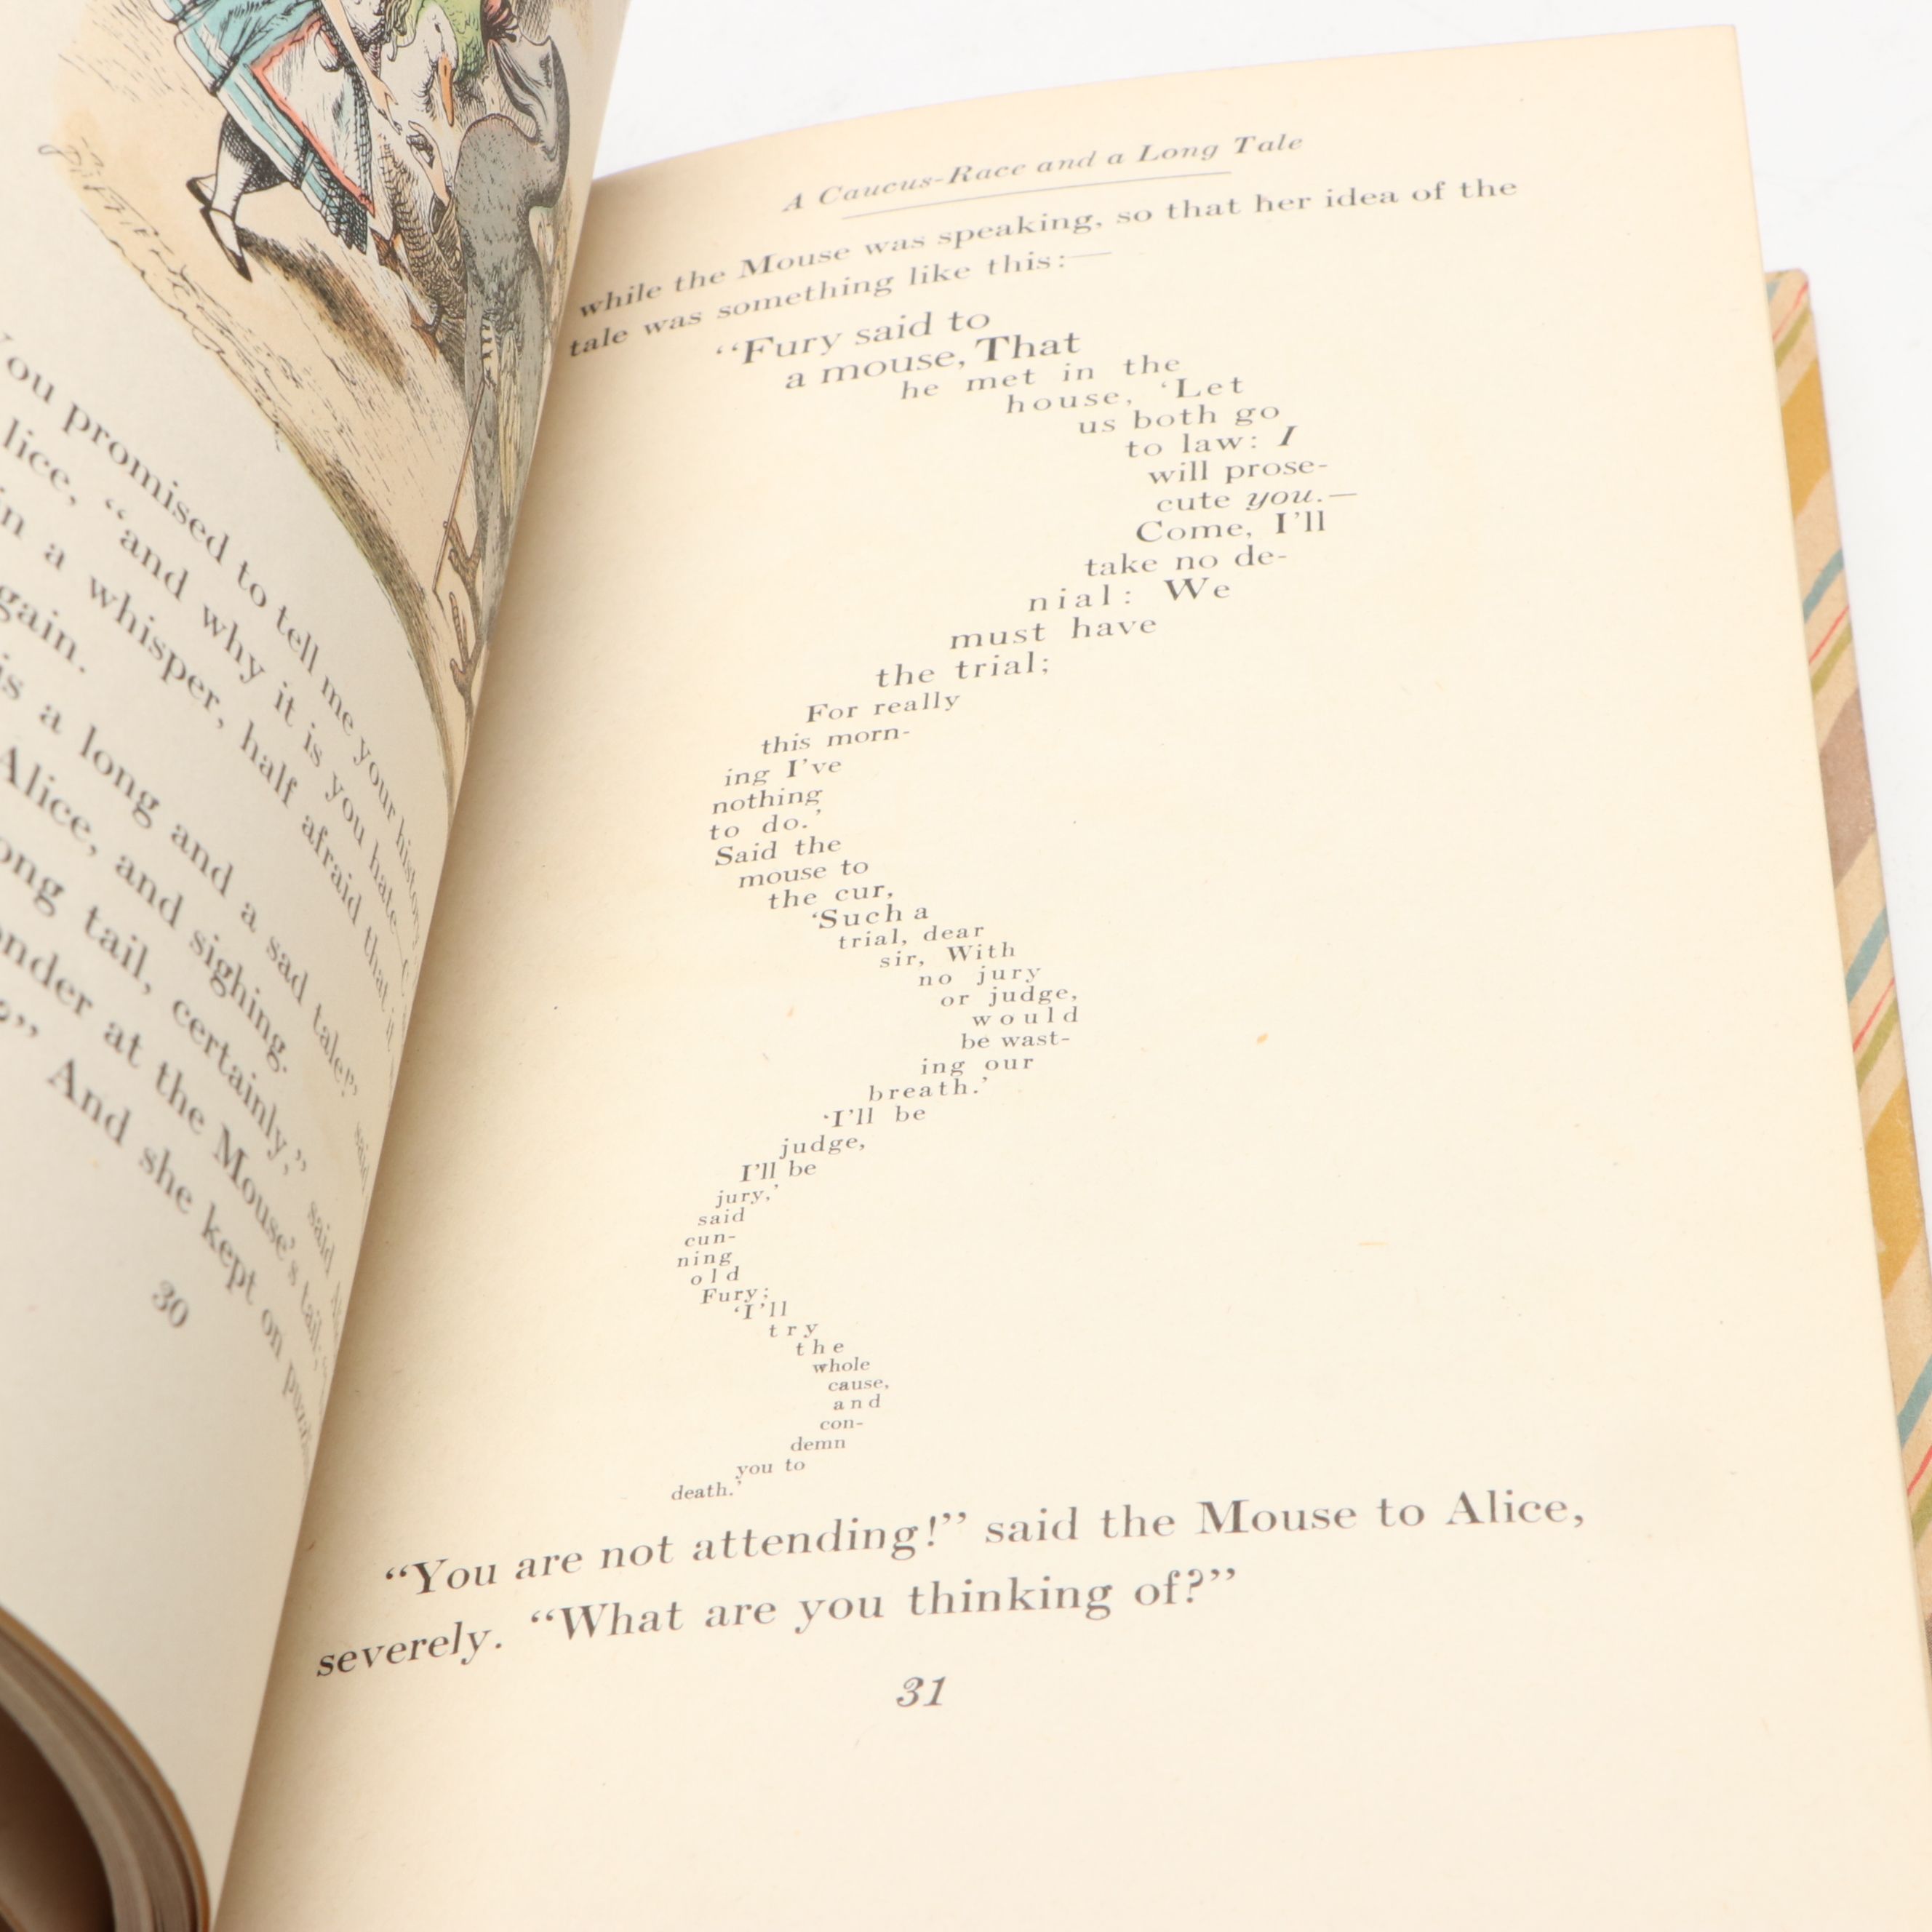 You promised to tell me your
lice, "and why it is you hate—
in a whisper, half afraid that
gain.
is a long and a sad tale!" said
Alice, and sighing.
ong tail, certainly," said
onder at the Mouse's tail;
?" And she kept on
30
A Caucus-Race and a Long Tale
while the Mouse was speaking, so that her idea of the
tale was something like this:—
"Fury said to
a mouse, That
he met in the
house, 'Let
us both go
to law: I
will prose-
cute you.—
Come, I'll
take no de-
nial: We
must have
the trial;
For really
this morn-
ing I've
nothing
to do.'
Said the
mouse to
the cur,
'Such a
trial, dear
sir, With
no jury
or judge,
would
be wast-
ing our
breath.'
'I'll be
judge,
I'll be
jury,'
said
cun-
ning
old
Fury;
'I'll
try
the
whole
cause,
and
con-
demn
you to
death.'
"You are not attending!" said the Mouse to Alice,
severely. "What are you thinking of?"
31